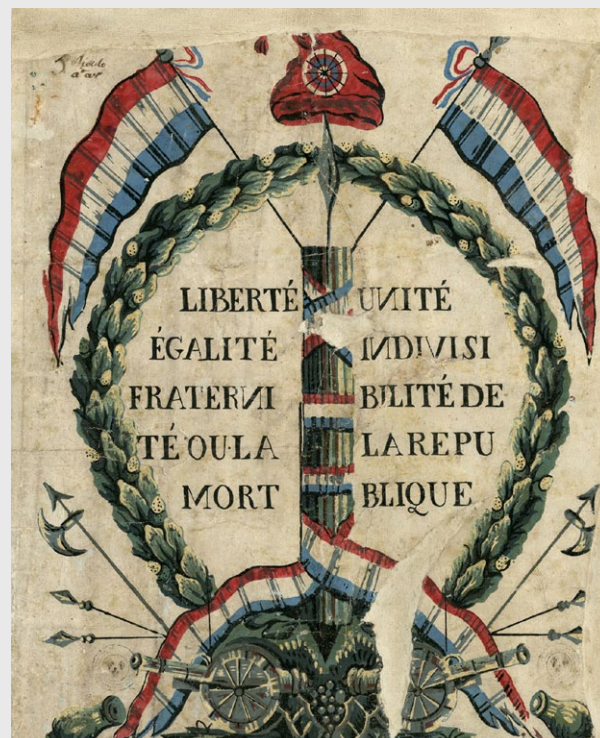 LIBERTÉ
ÉGALITÉ
FRATERNI
TÉ OU·LA
MORT
UNITÉ
INDIVISI
BILITÉ DE
LA REPU
BLIQUE